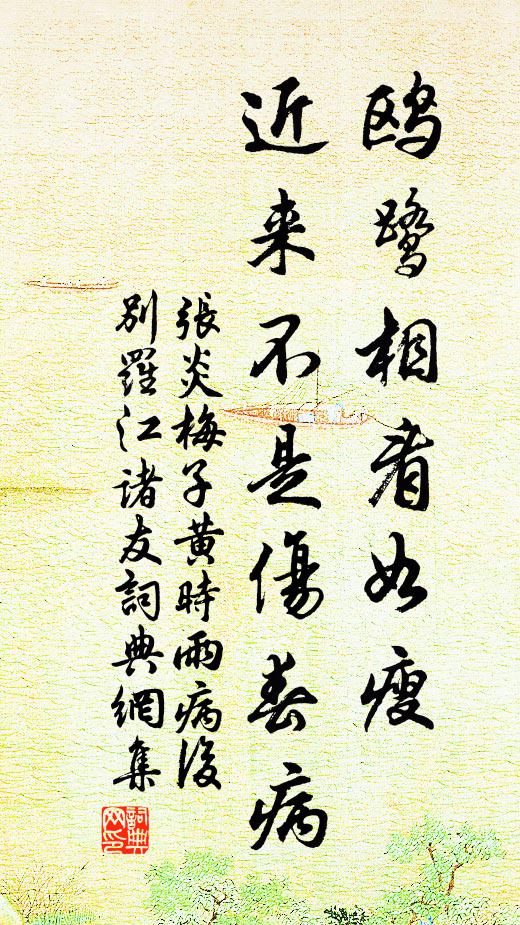 鸥鹭相看如瘦
近来不是傷春病
張炎梅子黄時雨病後
別羅江诸友詞典網集
詞典
网印